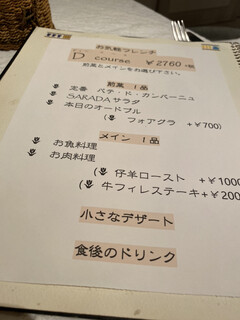 お気軽フレンチ
D course ￥2760
前菜とメインをお選び下さい。
前菜 1品
定番 パテ・ド・カンパーニュ
SARADAサラダ
本日のオードブル
( フォアグラ +￥700)
メイン 1品
お魚料理
お肉料理
( 仔羊ロースト +￥1000
( 牛フィレステーキ+￥200
小さなデザート
食後のドリンク